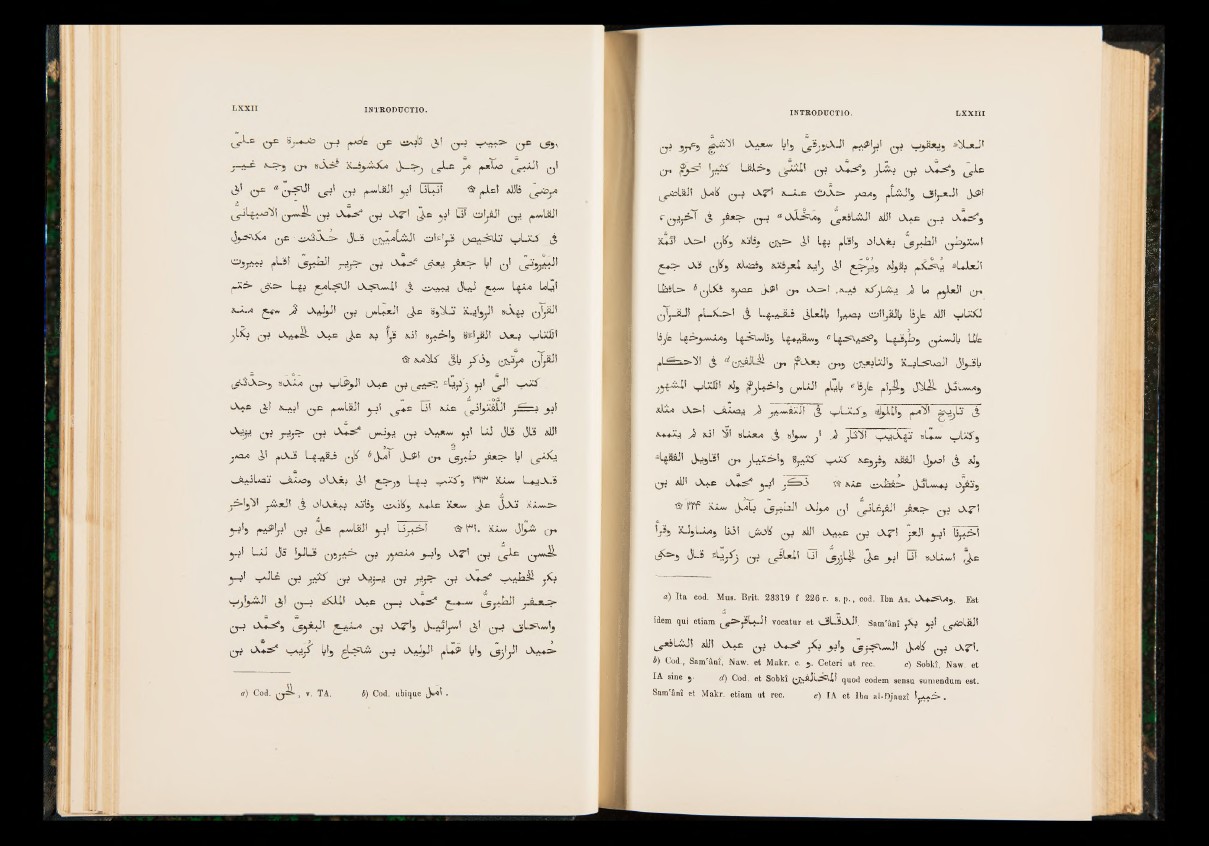 LXXII INTRODUCTIO.
روى عن حبيب بن ابى ثابت عن عاصم بن ضمرة عن علىّ
ان النبىّ صلعم مرّ على رجل مكشوفة فخذه من وجه غير
مرضىّ فالله اعلم ۞ أنبأنا ابو القاسم بن ابى الجنّ a عن ابى
القاسم بن الفرات انا ابو علىّ احمد بن محمّد بن الحسن الاصبهانىّ
فى كتاب تلخيص قراءات الشأميّين قال حُدّثت عن مكحول
البَيْروتىّ ان ابا جعفر يعنى محمّد بن جرير الطبرىّ اقام ببيروت
ايّاما منها سبع ليال يبيت فى المسجد الجامع بها حتى ختم
القرآن بهذه الرواية تلاوة على العبّاس بن الوليد ثم سمع منه
الكتاب بعد القراءة واخبره انه قرأ به على عبد الحميد بن بكّار
القرآن مرّتين وذكر باقى كلامه ۞
كتب الىّ ابو زكريّاء يحيى بن عبد الوهّاب بن مَنْدة وحدّثنى
ابو بكر اللَّفْتُوانىّ عنه انا عمّى ابو القاسم عن ابيه ابى عبد
الله قال قال لنا ابو سعيد بن يونس محمّد بن جرير بن يزيد
يكنى ابا جعفر طبرىّ من اهل آمل b كان فقيها قدم الى مصر
قديما سنة ٢٦٣ وكتب بها ورجع الى بغداد وصنّف تصانيف
حسنة تدلّ على سعة علمه وكانت وفاته ببغداد فى العشر الاواخر
من شوّال سنة ٣١٠ ۞ أخبرنا ابو القاسم علىّ بن ابراهيم وابو
الحسن علىّ بن احمد وابو منصور بن خيرون قالوا قال لنا ابو
بكر الخطيب محمّد بن جرير بن يزيد بن كثير بن غالب ابو
جعفر الطبرىّ سمع محمّد بن عبد الملك بن ابى الشوارب
واسحاق بن ابى اسرائيل واحمد بن منيع البغوىّ ومحمّد بن
حُميد الرازىّ وابا همّام الوليد بن شجاع وابا كُريب محمّد بن
a) Cod. الحن, v. TA. b) Cod. ubique امل.
INTRODUCTIO. LXXIII
العلاء ويعقوب بن ابراهيم الدورقىّ وابا سعيد الاشجّ وعمرو بن
علىّ ومحمّد بن بشّار ومحمّد بن المثنّى وخلقا كثيرا نحوهم من
اهل العراق والشأم ومصر حدّث عنه احمد بن كامل القاضى
ومحمّد بن عبد الله الشافعىّ ومَخْلَد a بن جعفر فى آخرين
استوطن الطبرىّ بغداد واقام بها الى حين وفاته وكان احد ائمّة
العلماء يُحْكَم بقوله ويُرْجَع الى رايه لمعرفته وفضله وكان قد جمع
من العلوم ما لم يشاركه فيه احد من اهل عصره فكان b حافظا
لكتاب الله عارفا بالقراات بصيرا بالمعانى فقيها فى احكام القرآن
عالما بالسنن وطُرقها وصحيحها c وسقيمها وناسخها ومنسوخها عارفا
باقوال الصحابة والتابعين ومن بعدهم من المخالفين d فى الاحكام
ومسائل الحلال والحرام عارفا e بايّام الناس واخبارهم وله الكتاب المشهور
فى تاريخ الامم والملوك وكتاب فى التفسير لم يصنّف احد مثله
وكتاب سمّاه تهذيب الآثار لم ار سواه فى معناه الّا انه لم يتممه
وله فى اصول الفقه وفروعه كتب كثيرة واختيار من اقاويل الفقهاء
وتفرّد بمسائل حُفظت عنه ۞ ذكر ابو محمّد عبد الله بن
احمد بن جعفر الفرغانىّ ان مولد الطبرىّ بآمل سنة ٢٢۴ ۞
أخبرنا ابو العزّ احمد بن عبيد الله بن كادش اذنا ومناولة وقرأ
علىّ اسناده انا ابو علىّ الجازرىّ انا المعافى بن زكريّاء قال وحكى
a) Ita cod. Mus. Brit. 23319 f 226 r. s. p., cod. Ibn As. ومحمد. Est
idem qui etiam الباقرحى vocatur et الدقاق. Sam'ânî ابو بكر القاضى
احمد بن كامل السجزى وابو بكر محمد بن عبد الله الشافعى.
b) Cod., Sam'ânî, Naw. et Makr. c. و. Ceteri ut rec. c) Sobkî, Naw. et
IA sine و. d) Cod. et Sobkî المخالفين quod eodem sensu sumendum est.
Sam'ânî et Makr. etiam ut rec. e) IA et Ibn al-Djauzî خبيرا.